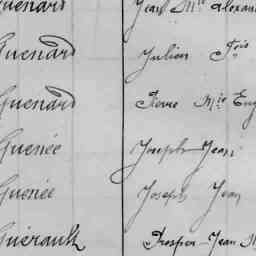 Guenard Jean Mie Alexand
Guenard Julien Fois
Guenard Pierre Mie Eug
Guenée Joseph Jean
Guenée Joseph Jean
Guérault Prosper Jean M